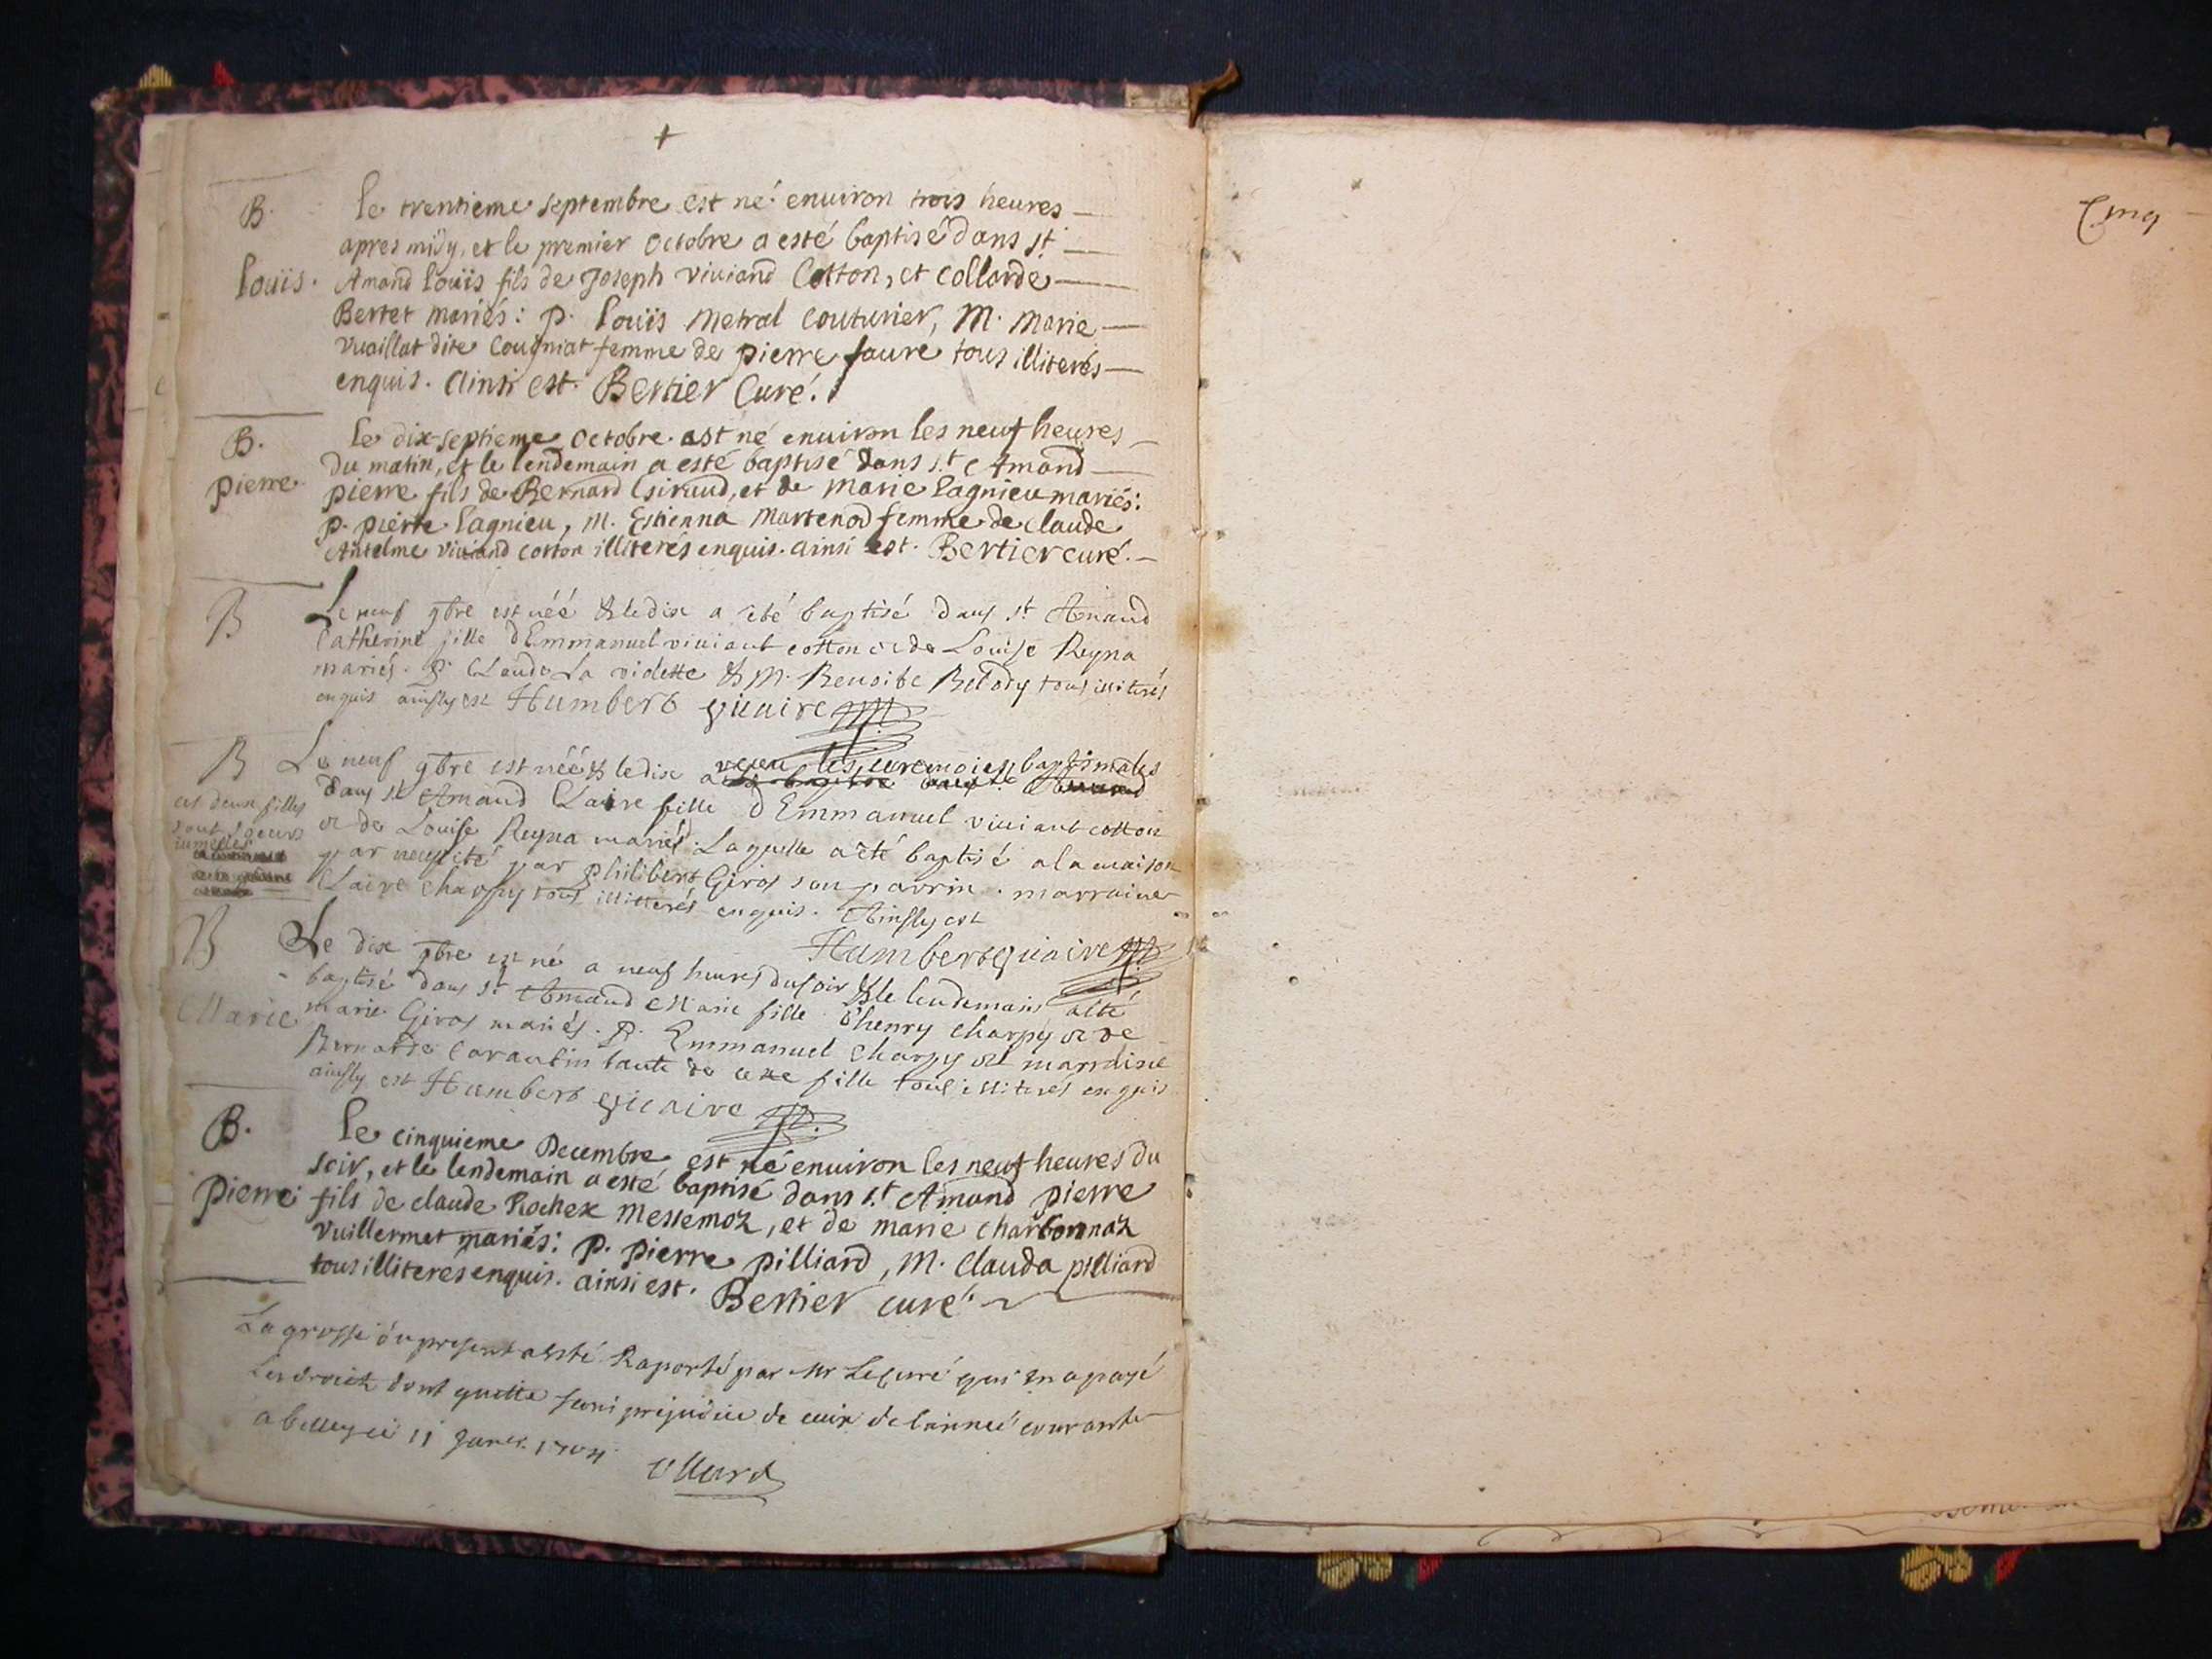 +
B. Le trentieme septembre est né enuiron trois heures
apres midy, et le premier octobre a esté baptisé dans st
Louïs. Amand Louïs fils de Joseph viuiand Cotton, et Collarde
Bertet mariés: p. Louïs Metral Couturier, M. Marie
vuaillat dite Cougniat femme de pierre faure tous illiterés
enquis. Ainsi est. Bertier Curé.
B. Le dix-septieme octobre est né enuiron les neuf heures
du matin, et le lendemain a esté baptisé dans s.t Amand
pierre pierre fils de Bernard Giraud, et de marie Lagnieu mariés:
p. pierre Lagnieu, M. Estienna Martenod femme de claude
Antelme viuiand cotton illiterés enquis. ainsi est. Bertier curé.
B Le neuf 9bre est néé & le dix a été baptisé dans st Amand
Catherine fille d'Emmanuel viuiant cotton et de Louise Reyna
mariés. P. Claude La violette & M. Benoite Belody tous illiterés
enquis ainsy est Humbert vicaire
B Le neuf 9bre est néé & le dix a receu les ceremoies baptismales
dans st Amand Claire fille d'Emmanuel viuiant cotton
ces deux filles
sont soeurs
jumelles
et de Louise Reyna mariés. Laquelle a été baptisé a la maison
par necessité par philibert Giros son parrin. marraine
Claire Charpy tous illitterés enquis. Ainsy est
Humbert vicaire
B Le dix 9bre est né a neuf heures du soir & le lendemain a été
baptisé dans st Amand Marie fille d'henry Charpy et de
Marie marie Giros mariés. P. Emmanuel Charpy et marraine
Bernarde Carantin tante de cette fille tous illiterés enquis
ainsy est Humbert vicaire
B. Le cinquieme Decembre est né enuiron les neuf heures du
soir, et le lendemain a esté baptisé dans s.t Amand pierre
pierre fils de claude Rochex Messemoz, et de marie charbonnaz
vuillermet mariés: p. pierre pilliard, M. Clauda pilliard
tous illiterés enquis. ainsi est. Bertier curé.
La grosse du present a esté Raporté par Mr Le Curé qui en a payé
Les droictz dont quitte sans prejudice de ceux de l'année courante
a belley ce 11 Janer. 1704
Cinq